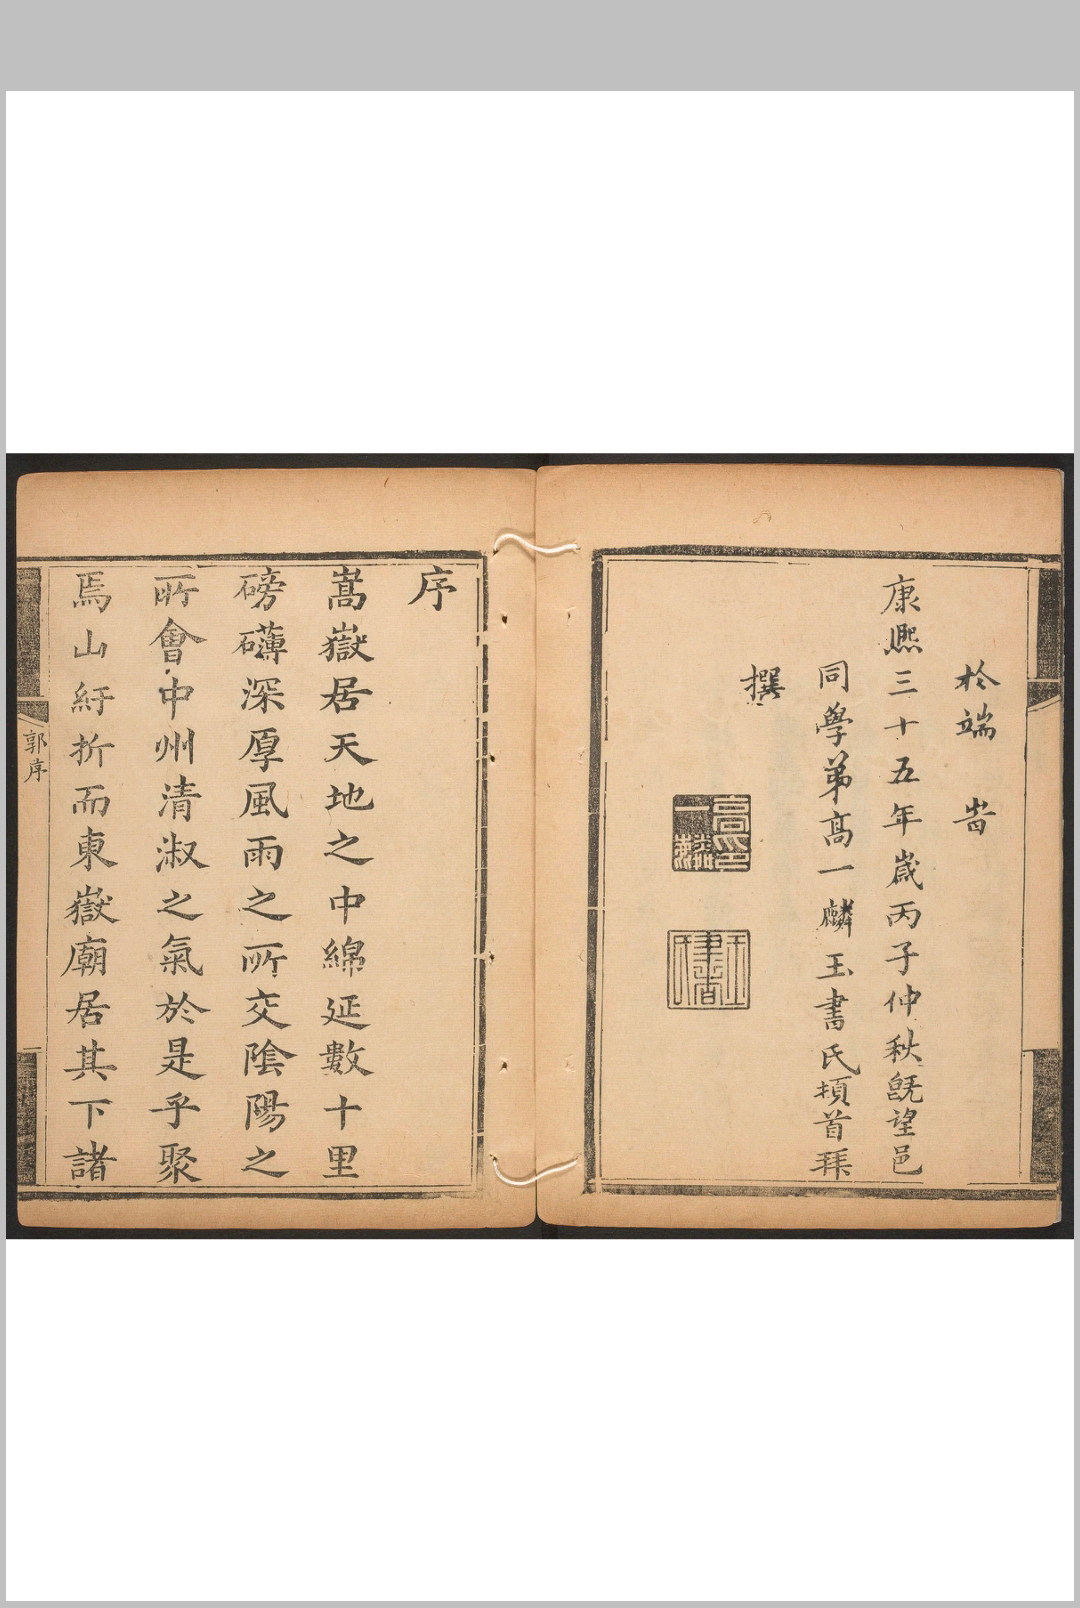 於端 旹
康熙三十五年歲丙子仲秋旣望邑
同學弟高一麟玉書氏頓首拜
撰
高一麟印
玉書氏
序
嵩嶽居天地之中綿延數十里
磅礴深厚風雨之所交陰陽之
所會中州清淑之氣於是乎聚
焉山紆折而東嶽廟居其下諸
郭序